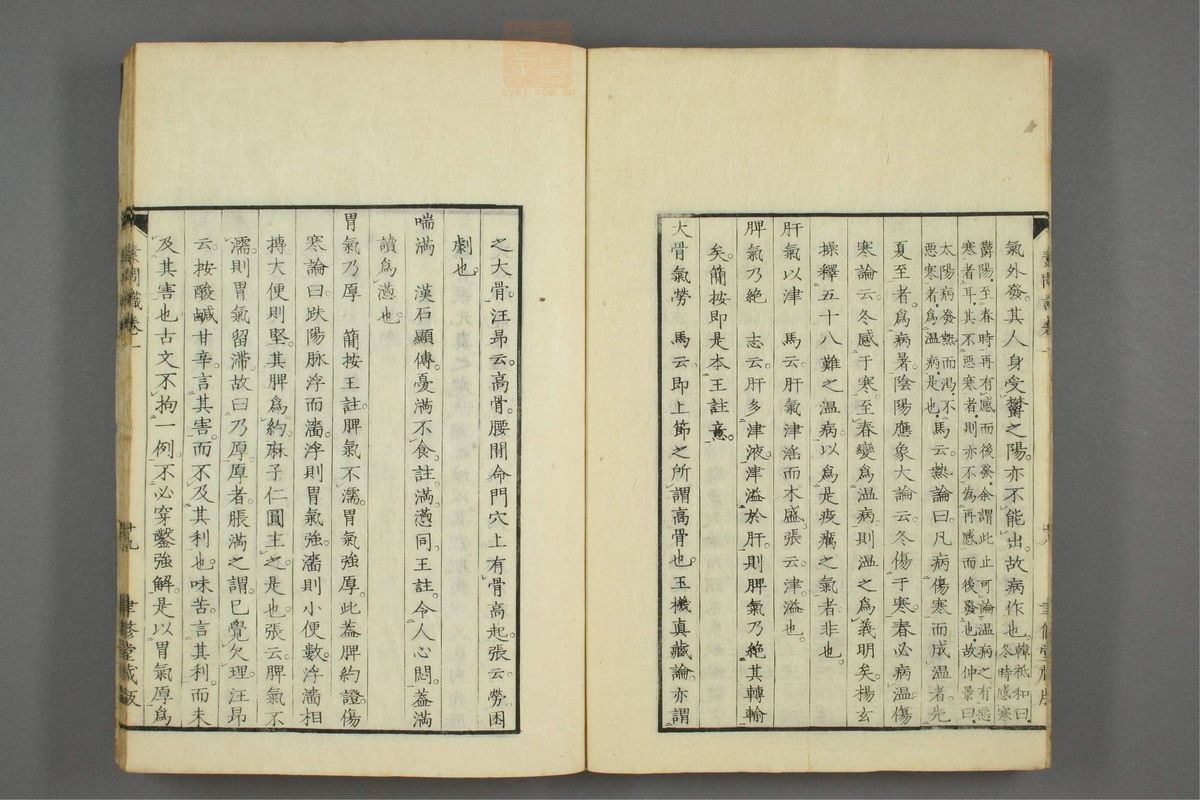 氣外發。其人身受鬱之陽。亦不能出。故病作也。韓祗和曰。冬時感寒
鬱陽。至春時再有感而後發。余謂此止可論溫病之有惡
寒者耳。其不惡寒者。則亦不為再感而後發也。故仲景曰。
太陽病發熱而渴。不惡寒者。為溫病是也。馬云。熱論曰。凡病傷寒而成溫者。先
夏至者。為病溫
寒論云。冬感于寒。至春變為溫病。則溫之為義明矣。楊玄
操釋五十八難之溫病。以為是疫癘之氣者。非也。
肝氣以津　馬云。肝氣津淫而木盛。張云。津溢也。
脾氣乃絕　志云。肝多津液。津溢於肝。則脾氣乃絕其轉輸
矣。簡按即是本王註意。
大骨氣勞　馬云。即上節之所謂高骨也。玉機真藏論。亦謂
之大骨。汪昂云。高骨。腰間命門穴上有骨高起。張云。勞困
劇也。
喘滿　漢石顯傳。憂滿不食。註。滿。懣同。王註。令人心悶。蓋滿
讀為懣也。
胃氣乃厚　簡按王註。脾氣不濡。胃氣強厚。此蓋脾約證。傷
寒論曰。趺陽脉浮而濇。浮則胃氣強。濇則小便數。浮濇相
搏。大便則堅。其脾為約。麻子仁圓主之。是也。張云。脾氣不
濡。則胃氣留滯。故曰乃厚。厚者。脹滿之謂。已覺欠理。汪昂
云。按酸鹹甘辛。言其害。而不及其利也。味苦。言其利。而未
及其害也。古文不拘一例。不必穿鑿強解。是以胃氣厚為
素問識卷一
聿修堂藏版